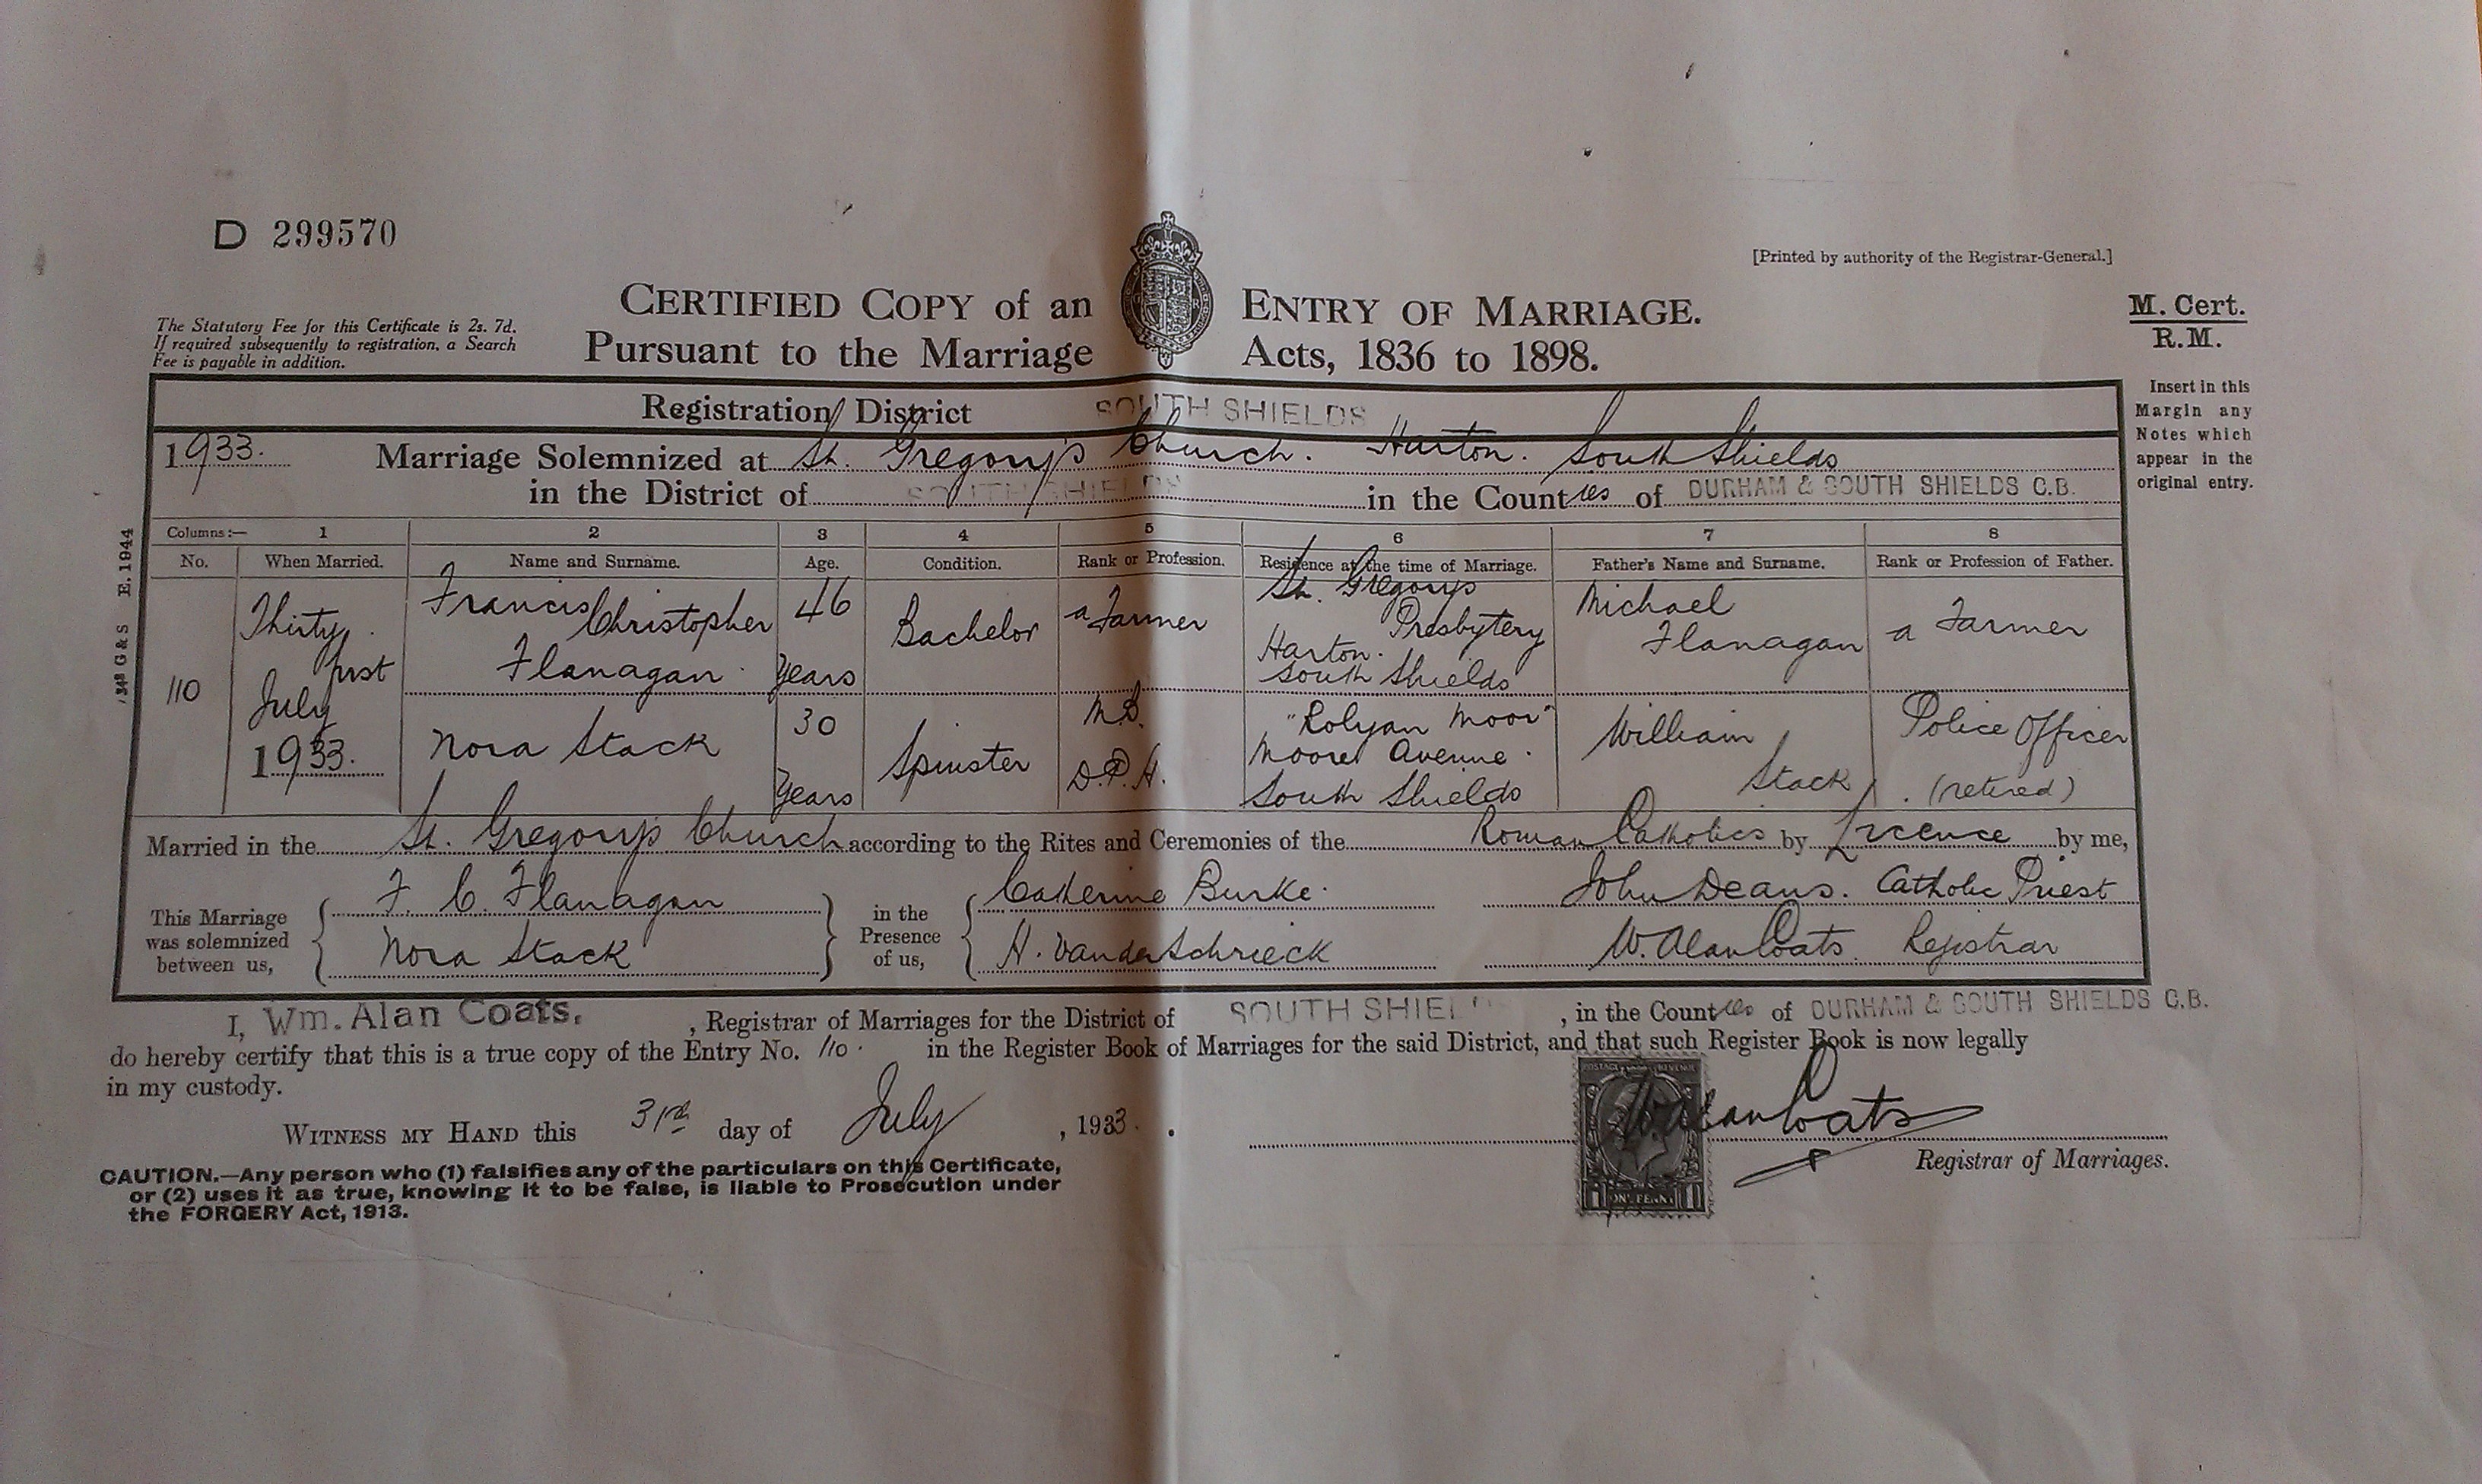 D 299570
[Printed by authority of the Registrar-General.]
CERTIFIED COPY of an ENTRY OF MARRIAGE.
Pursuant to the Marriage Acts, 1836 to 1898.
M. Cert.
R.M.
The Statutory Fee for this Certificate is 2s. 7d.
If required subsequently to registration, a Search
Fee is payable in addition.
Insert in this
Margin any
Notes which
appear in the
original entry.
Registration District SOUTH SHIELDS
1933. Marriage Solemnized at St. Gregory's Church. Harton. South Shields
in the District of SOUTH SHIELDS in the Counties of DURHAM & SOUTH SHIELDS C.B.
Columns:— 1 2 3 4 5 6 7 8
No. When Married. Name and Surname. Age. Condition. Rank or Profession. Residence at the time of Marriage. Father's Name and Surname. Rank or Profession of Father.
110
Thirty
first
July
1933.
Francis Christopher
Flanagan
46
Years
Bachelor
a Farmer
St. Gregory's
Presbytery
Harton.
South Shields
Michael
Flanagan
a Farmer
Nora Stack
30
Years
Spinster
M.B.
D.P.H.
Moor
Avenue
South Shields
William
Stack
Police Officer
(retired)
Married in the St. Gregory's Church according to the Rites and Ceremonies of the Roman Catholics by Licence by me,
This Marriage
was solemnized
between us,
F. C. Flanagan
Nora Stack
in the
Presence
of us,
Catherine Burke.
H. Vanderschrieck
John Deans. Catholic Priest
W. Alan Coats Registrar
I, Wm. Alan Coats, , Registrar of Marriages for the District of SOUTH SHIEL , in the Counties of DURHAM & SOUTH SHIELDS C.B.
do hereby certify that this is a true copy of the Entry No. 110. in the Register Book of Marriages for the said District, and that such Register Book is now legally
in my custody.
WITNESS MY HAND this 31st day of July , 1933.
W. Alan Coats
Registrar of Marriages.
POSTAGE REVENUE
ONE PENNY
CAUTION.—Any person who (1) falsifies any of the particulars on this Certificate,
or (2) uses it as true, knowing it to be false, is liable to Prosecution under
the FORGERY Act, 1913.
G & S E. 1944